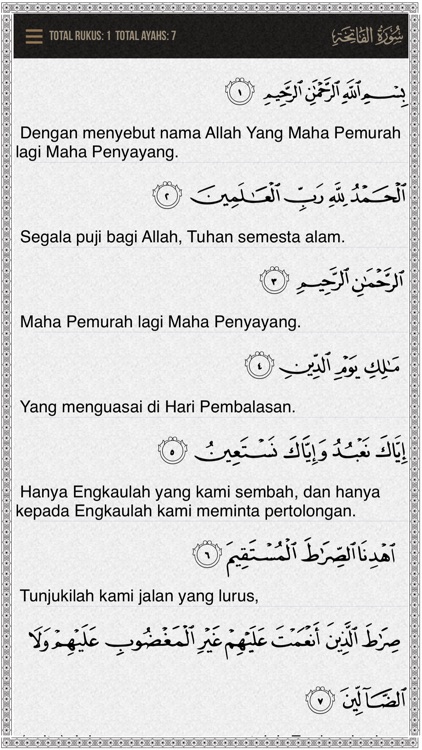 TOTAL RUKUS: 1 TOTAL AYAHS: 7
سُورَةُ الفَاتِحَةِ
بِسْمِ ٱللَّهِ ٱلرَّحْمَٰنِ ٱلرَّحِيمِ ١
Dengan menyebut nama Allah Yang Maha Pemurah
lagi Maha Penyayang.
ٱلْحَمْدُ لِلَّهِ رَبِّ ٱلْعَٰلَمِينَ ٢
Segala puji bagi Allah, Tuhan semesta alam.
ٱلرَّحْمَٰنِ ٱلرَّحِيمِ ٣
Maha Pemurah lagi Maha Penyayang.
مَٰلِكِ يَوْمِ ٱلدِّينِ ٤
Yang menguasai di Hari Pembalasan.
إِيَّاكَ نَعْبُدُ وَإِيَّاكَ نَسْتَعِينُ ٥
Hanya Engkaulah yang kami sembah, dan hanya
kepada Engkaulah kami meminta pertolongan.
ٱهْدِنَا ٱلصِّرَٰطَ ٱلْمُسْتَقِيمَ ٦
Tunjukilah kami jalan yang lurus,
صِرَٰطَ ٱلَّذِينَ أَنْعَمْتَ عَلَيْهِمْ غَيْرِ ٱلْمَغْضُوبِ عَلَيْهِمْ وَلَا
ٱلضَّآلِّينَ ٧